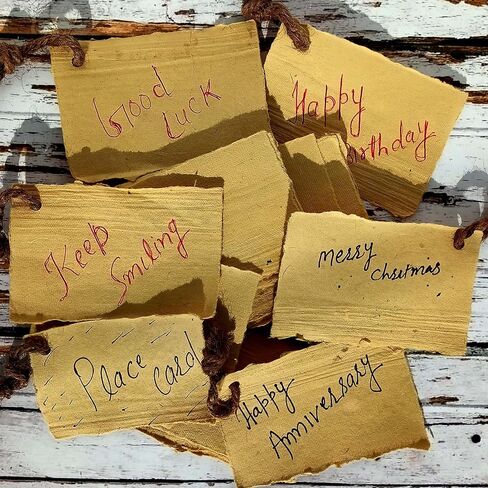 Good
Luck
Happy
Birthday
Keep
Smiling
Merry
Christmas
Place
Card
Happy
Anniversary